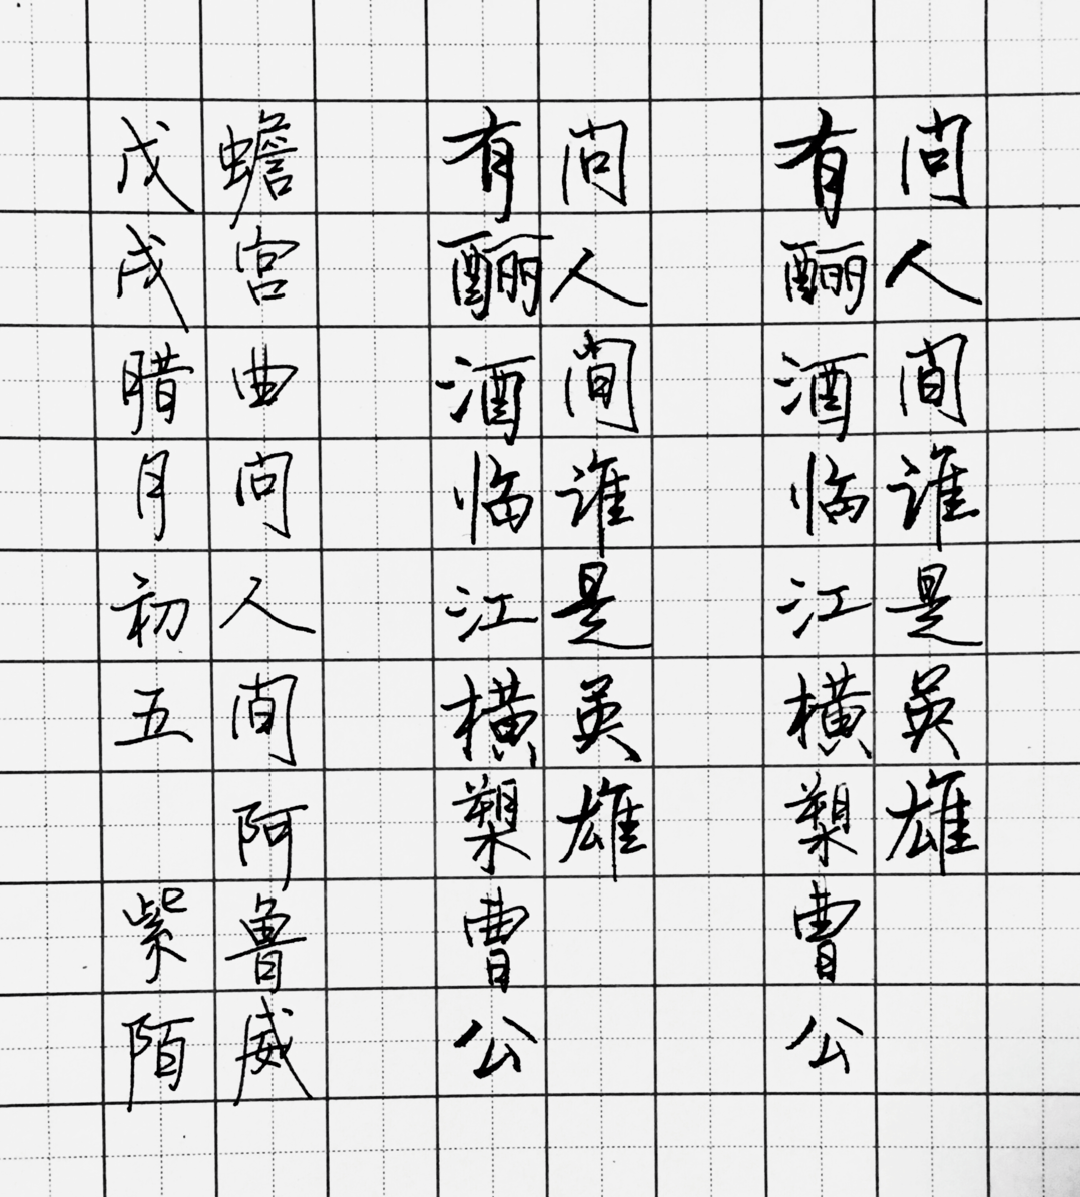 问人间谁是英雄
有酾酒临江横槊曹公
问人间谁是英雄
有酾酒临江横槊曹公
蟾宫曲问人间阿鲁威
戊戌腊月初五紫陌